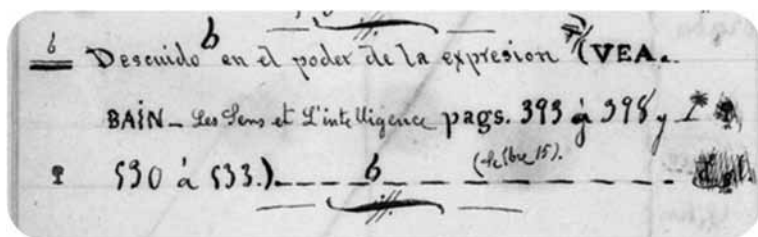 6 Descuido b en el poder de la expresion (VEA..
BAIN_ Les Sens et L'intelligence pags. 393 á 398 y 1*
530 á 533.) b (Setbre 15).